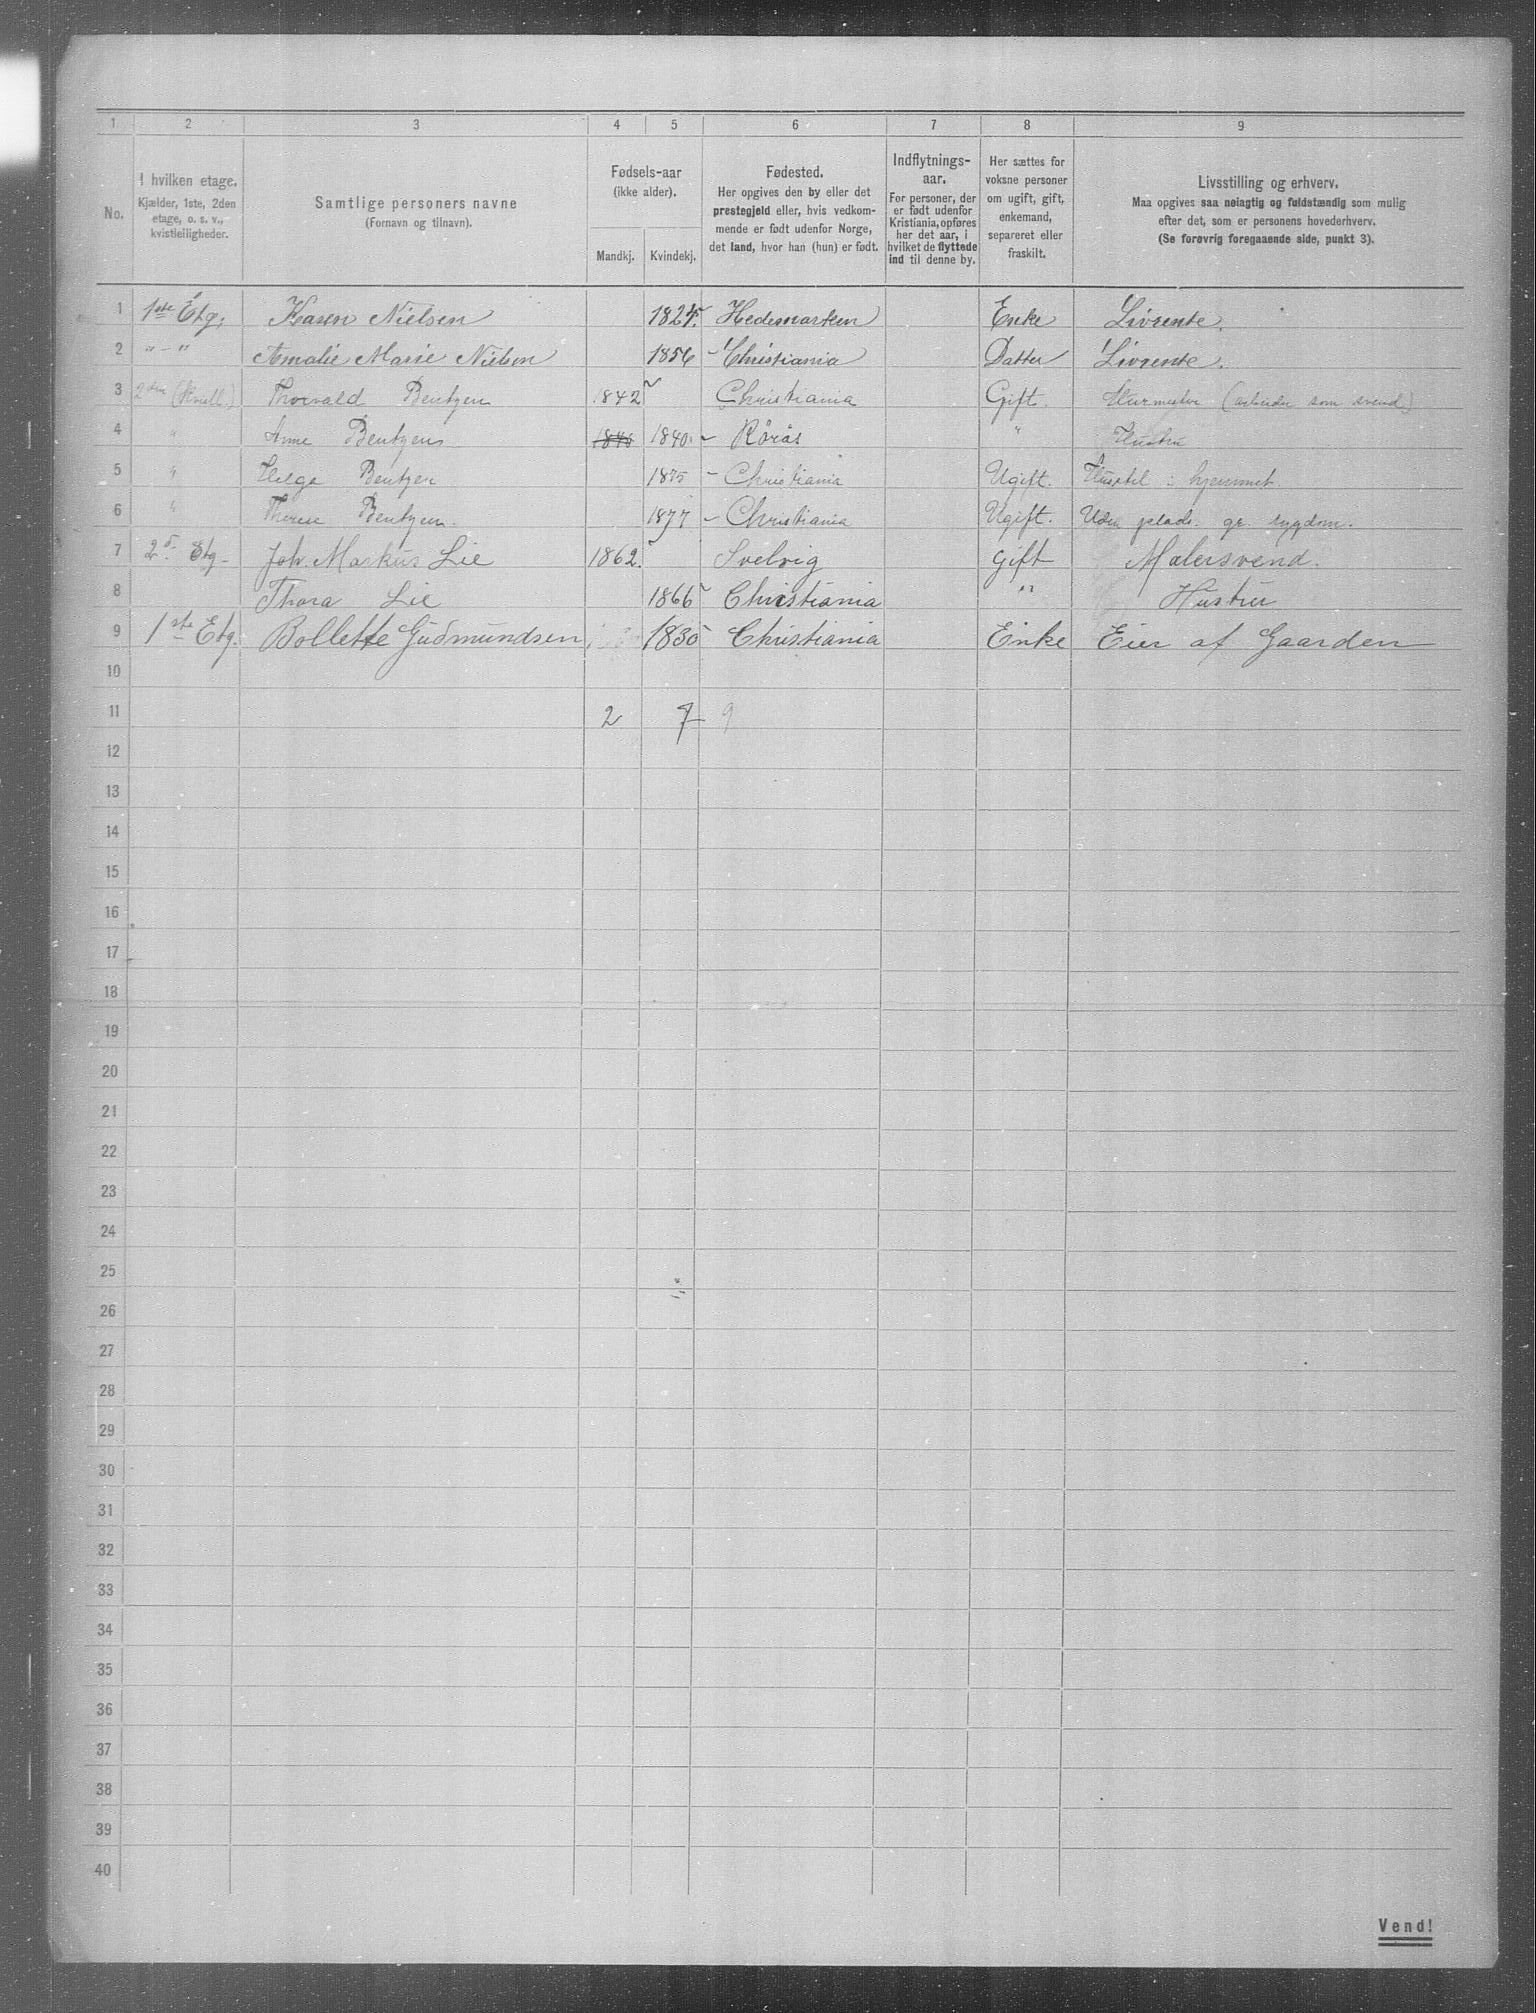 1 2 3 4 5 6 7 8 9
No.
I hvilken etage.
Kjælder, 1ste, 2den
etage, o. s. v.,
kvistleiligheder.
Samtlige personers navne
(Fornavn og tilnavn).
Fødsels-aar
(ikke alder).
Mandkj. Kvindekj.
Fødested.
Her opgives den by eller det
prestegjeld eller, hvis vedkom-
mende er født udenfor Norge,
det land, hvor han (hun) er født.
Indflytnings-
aar.
For personer, der
er født udenfor
Kristiania, opføres
her det aar, i
hvilket de flyttede
ind til denne by.
Her sættes for
voksne personer
om ugift, gift,
enkemand,
separeret eller
fraskilt.
Livsstilling og erhverv.
Maa opgives saa nøiagtig og fuldstændig som mulig
efter det, som er personens hovederhverv.
(Se forøvrig foregaaende side, punkt 3).
1 1ste Etg. Karen Nielsen 1825 Hedemarken Enke Livrente.
2 " - " Amalie Marie Nielsen 1856 - Christiania Datter Livrente.
3 2den Thorvald Bentzen 1842 Christiania Gift. (arbeider som svend)
4 " Anne Bentzen 1840 1840 - Rørås " Hustru
5 " Helga Bentzen 1875 - Christiania Ugift. i hjemmet.
6 " Therese Bentzen. 1877 - Christiania Ugift. Uden plads. gr. sygdom.
7 2 Etg - Joh. Markus Lie 1862. Svelvig gift Malersvend.
8 Thora Lie 1866 Christiania " Hustru
9 1ste Etg. Bollette Gudmundsen 1830 Christiania Enke Eier af Gaarden
10
11 2 7 9
12
13
14
15
16
17
18
19
20
21
22
23
24
25
26
27
28
29
30
31
32
33
34
35
36
37
38
39
40
Vend!